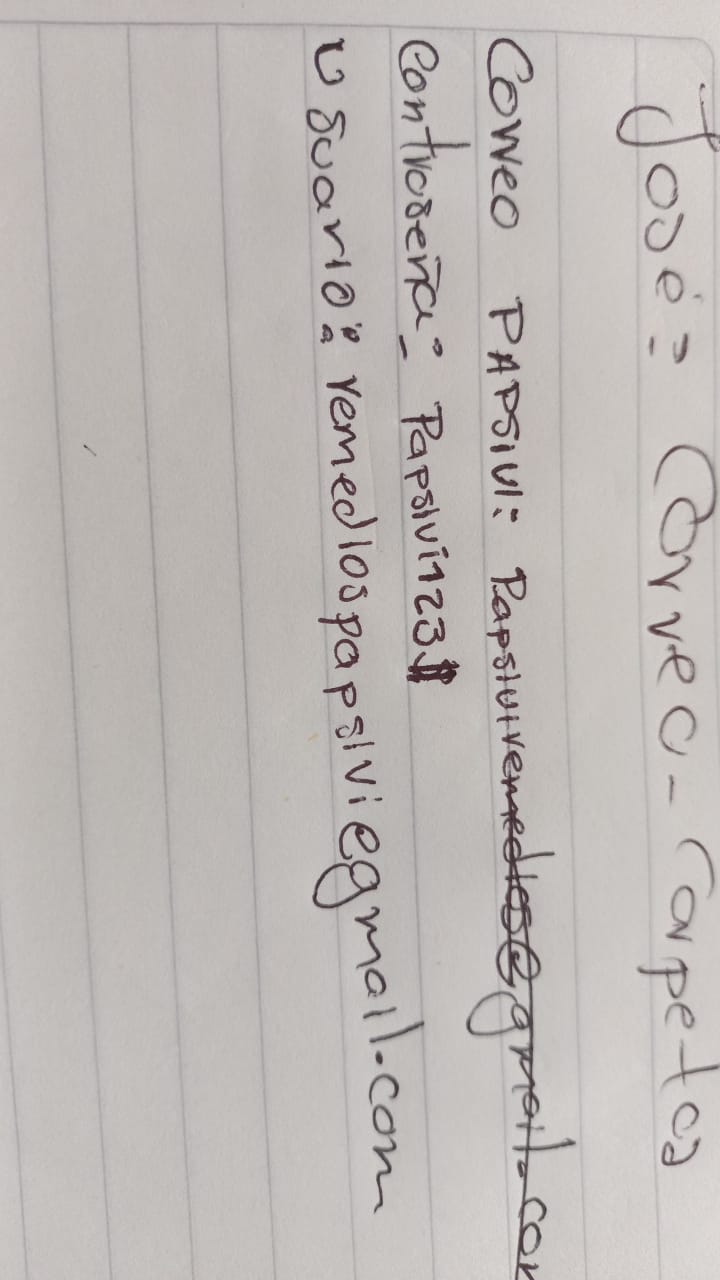 José: Correo - Carpetas
Correo PAPSIVI: Papsiviremedios@gmail.com
Contraseña: Papsivi123$
Usuario: remediospapsivi@gmail.com